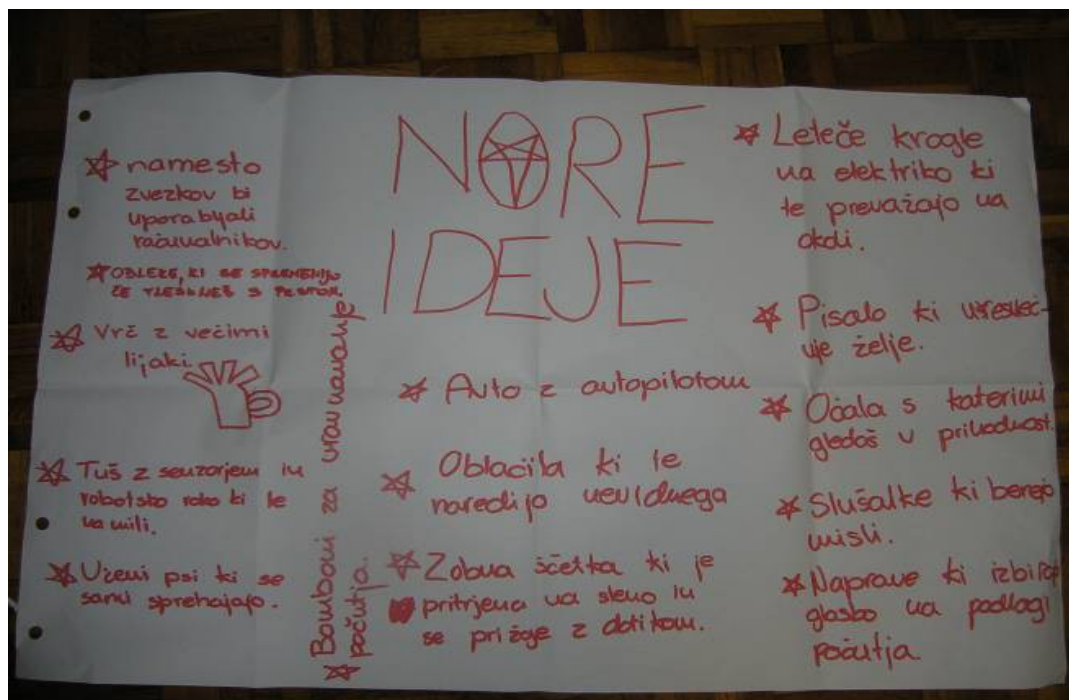 NORE
IDEJE
namesto
zvezkov bi
uporabljali
računalnikov.
OBLEKE, KI SE SPREMENIJO
ČE TLESKNEŠ S PRSTOM.
Vrč z večimi
lijaki.
Tuš z senzorjem in
robotsko roko ki te
namili.
Učeni psi ki se
sami sprehajajo.
Bomboni za uravnavanje
počutja.
Avto z autopilotom
Oblačila ki te
naredijo nevidnega
Zobna ščetka ki je
pritrjena na steno in
se prižge z dotikom.
Leteče krogle
na elektriko ki
te prevažajo na
okoli.
Pisalo ki uresnič-
uje želje.
Očala s katerimi
gledaš v prihodnost.
Slušalke ki berejo
misli.
Naprave ki izbirajo
glasbo na podlagi
počutja.